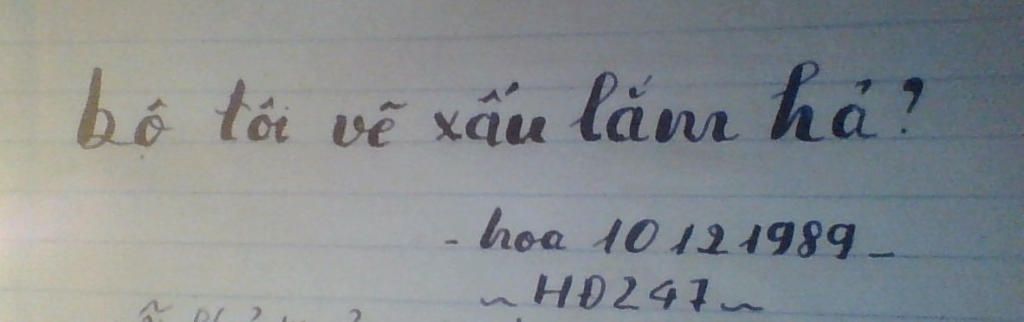 bộ tôi vẽ xấu lắm hả?
- hoa 10 12 1989 -
~ HĐ247 ~